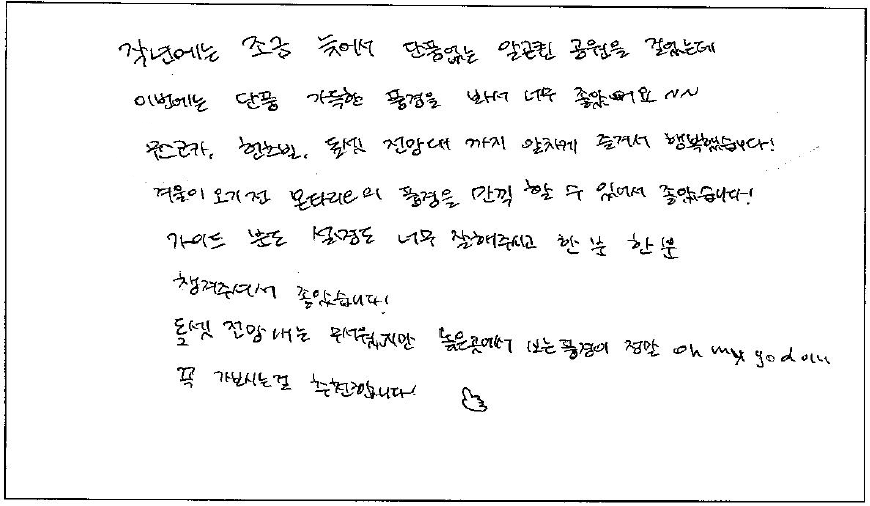 작년에는 조금 늦어서 단풍없는 알곤퀸 공원을 걸었는데
이번에는 단풍 가득한 풍경을 봐서 너무 좋았어요 ~~
무스코카, 헌츠빌, 돌셋 전망대 까지 알차게 즐겨서 행복했습니다!
겨울이 오기 전 온타리오의 풍경을 만끽 할 수 있어서 좋았습니다!
가이드 분도 설명도 너무 잘해주시고 한 분 한 분
챙겨주셔서 좋았습니다!
돌셋 전망대는 무서웠지만 높은곳에서 보는 풍경이 정말 oh my god이니
꼭 가보시는걸 추천합니다!